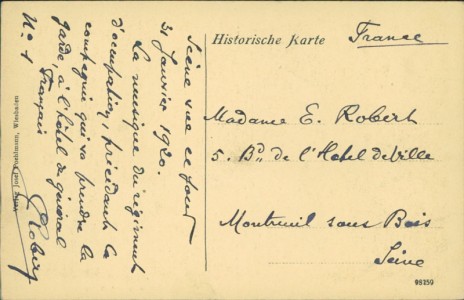 Historische Karte
France
Scène vue ce jour
31 Janvier 1920.
La musique du régiment
d'occupation, précédant la
compagnie qui va prendre la
garde, à l'hôtel du général
français
No. 1
Robert
Madame E. Robert
5. Bd. de l'Hotel de Ville
Montreuil sous Bois
Seine
Wiesbaden
98259